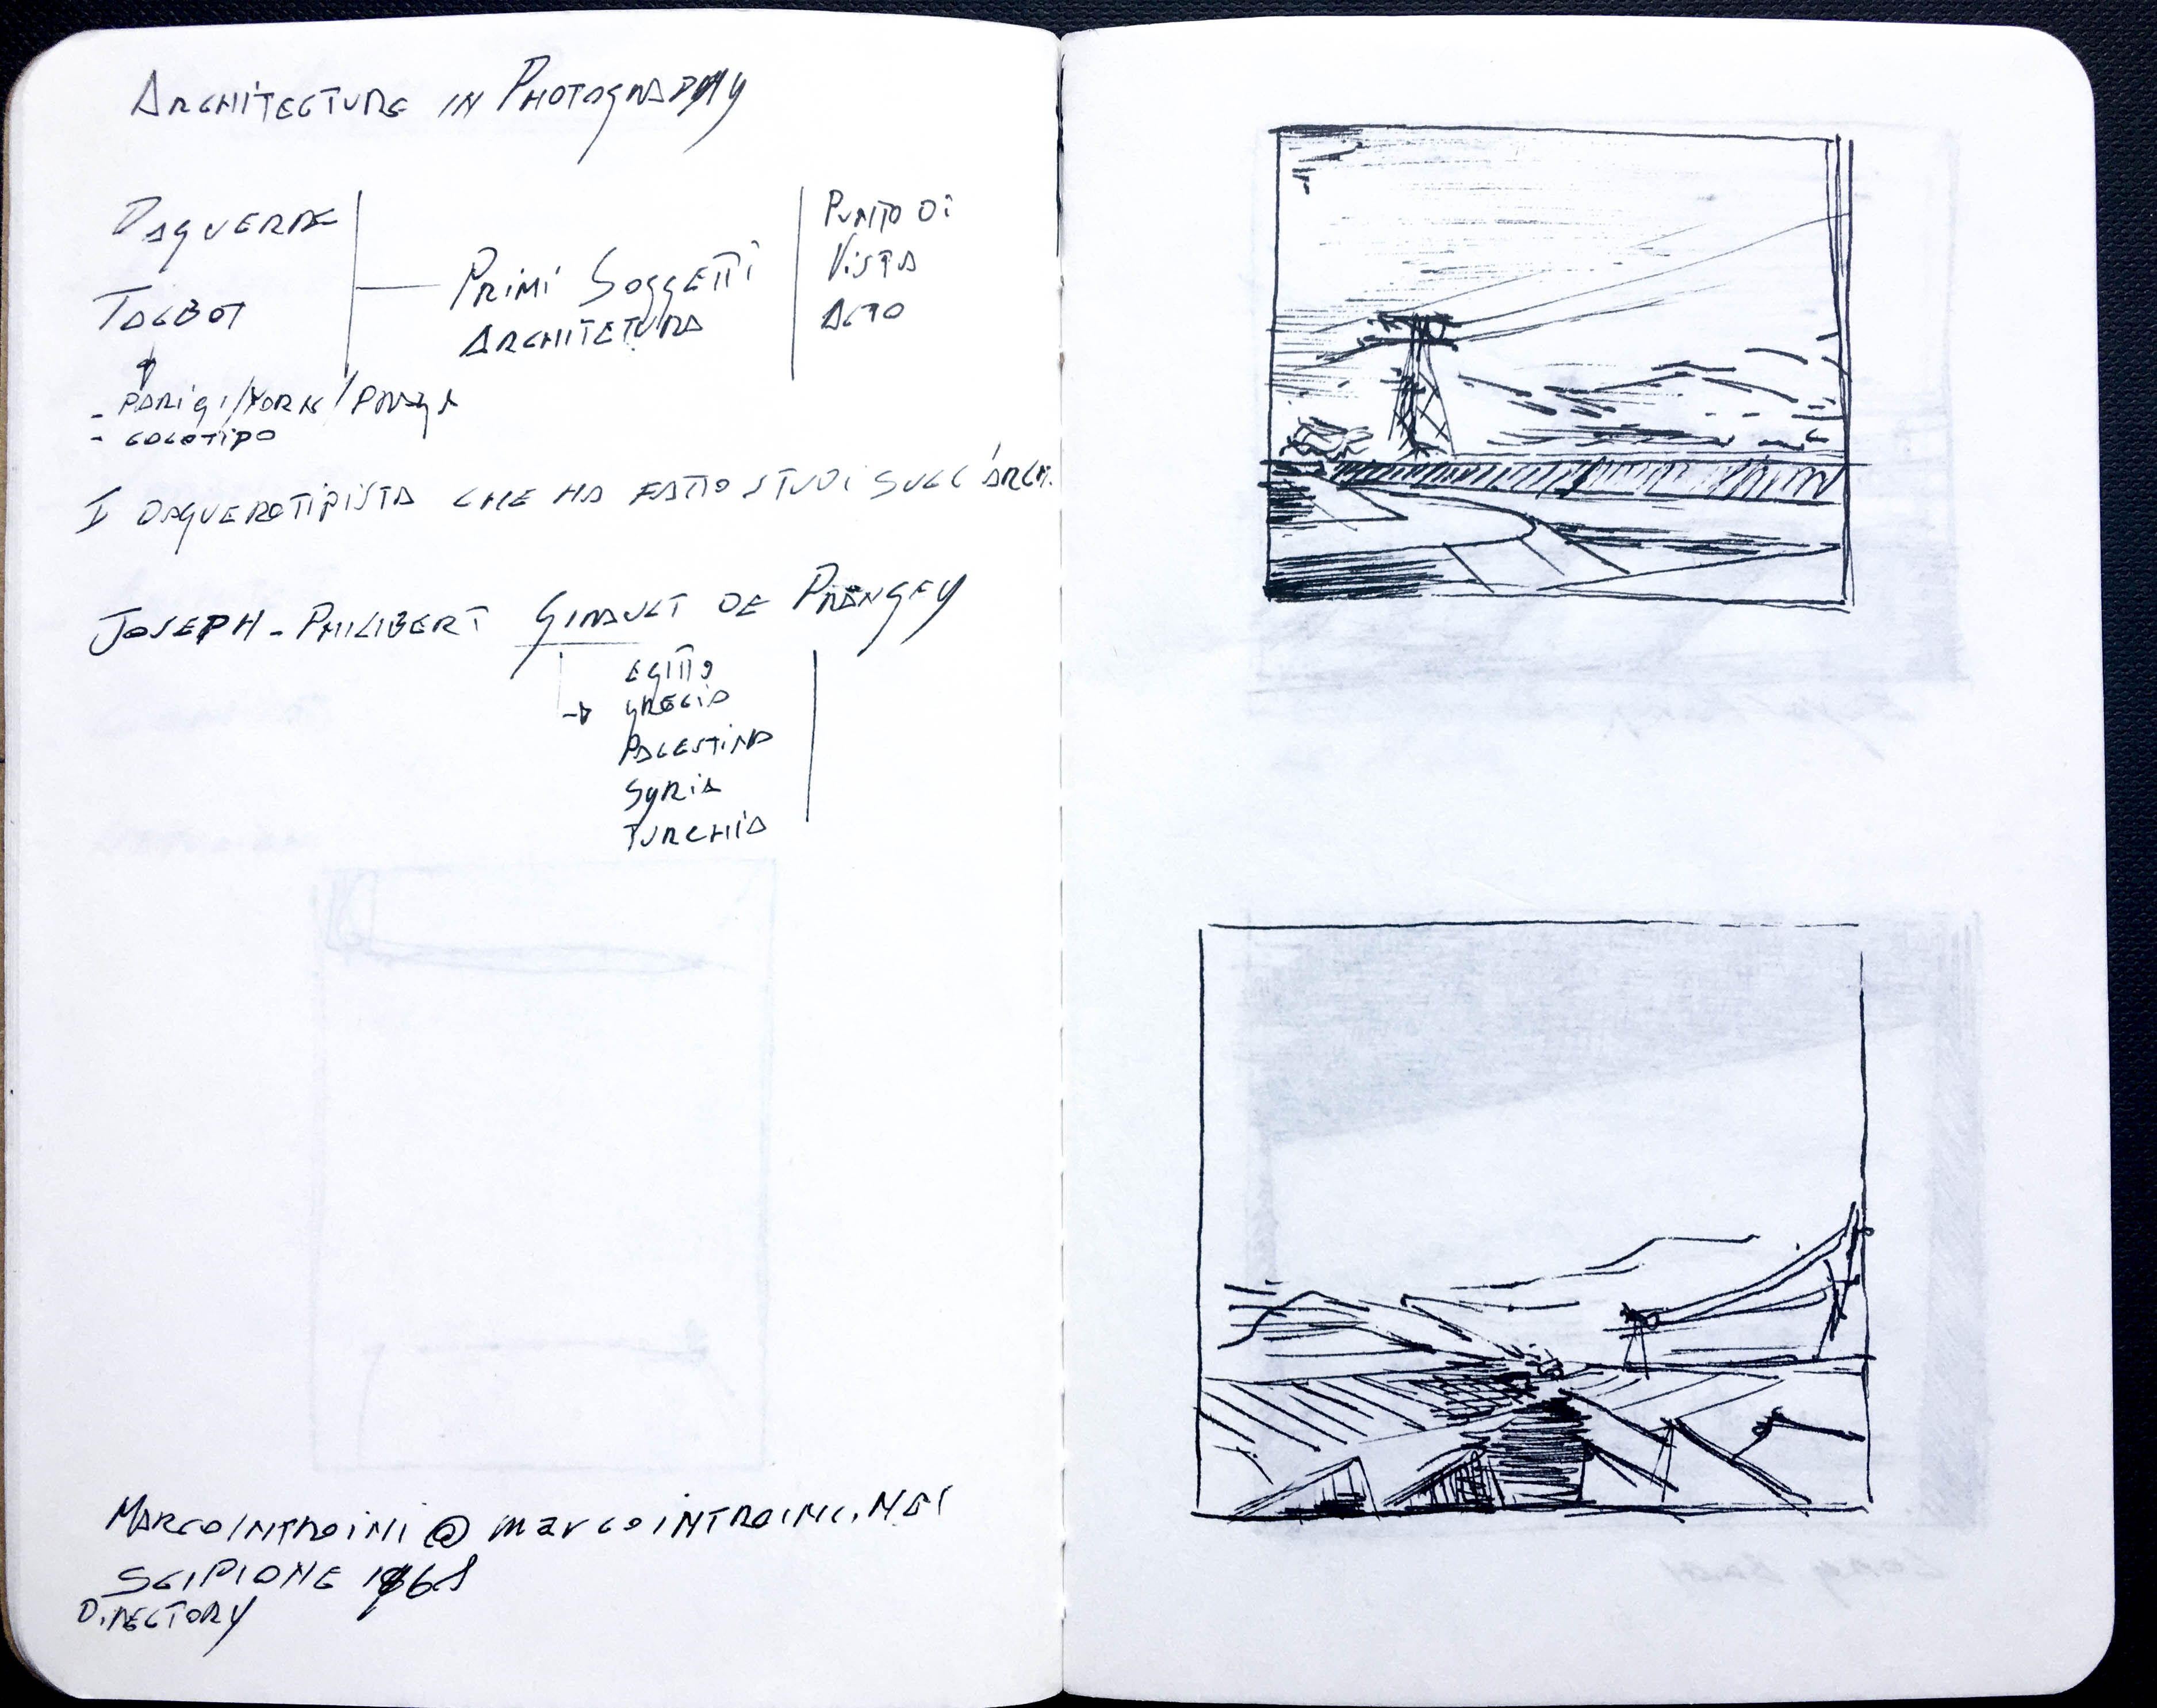 ARCHITECTURE IN PHOTOGRAPHY
DAGUERRE
TALBOT
PRIMI SOGGETTI
ARCHITETURA
PUNTO DI
VISTA
ALTO
- PARIGI/YORK/PRAGA
- CALOTIPO
I DAGUEROTIPISTA CHE HA FATTO STUDI SULL'ARCH.
JOSEPH-PHILIBERT GIRAULT DE PRANGEY
→ EGITTO
GRECIA
PALESTINA
SYRIA
TURCHIA
MARCOINTROINI@marcoINTROINI.NET
SCIPIONE 1968
DIRECTORY